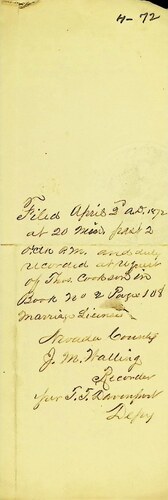 4-72
Filed April 2d A.D. 1872
at 20 min past 2
P.M. and duly
recorded at request
of Thos Cookson in
Book No 2 Page 108
Marriage Licenses
Nevada County
J. M. Walling
Recorder
per T. T. Davenport
Depy